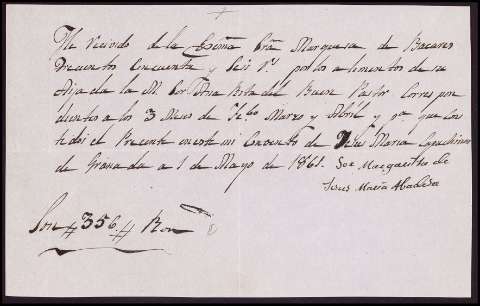 He recivido de la Exma Sra Marquesa de Bacares
Trecientos Cincuenta y Seis rs por los alimentos de su
Hija la M. Sor Rita del Buen Pastor. Corres pon
dientes a los 3 Meses de Febo Marzo y Abril y pa que cons
te doi el Presente en este mi Convento de Jesus Maria Capuchinas
de Granada a 1 de Mayo de 1861. Sor Margarita de
Jesus Maria Abadesa
Son # 356 # Ron